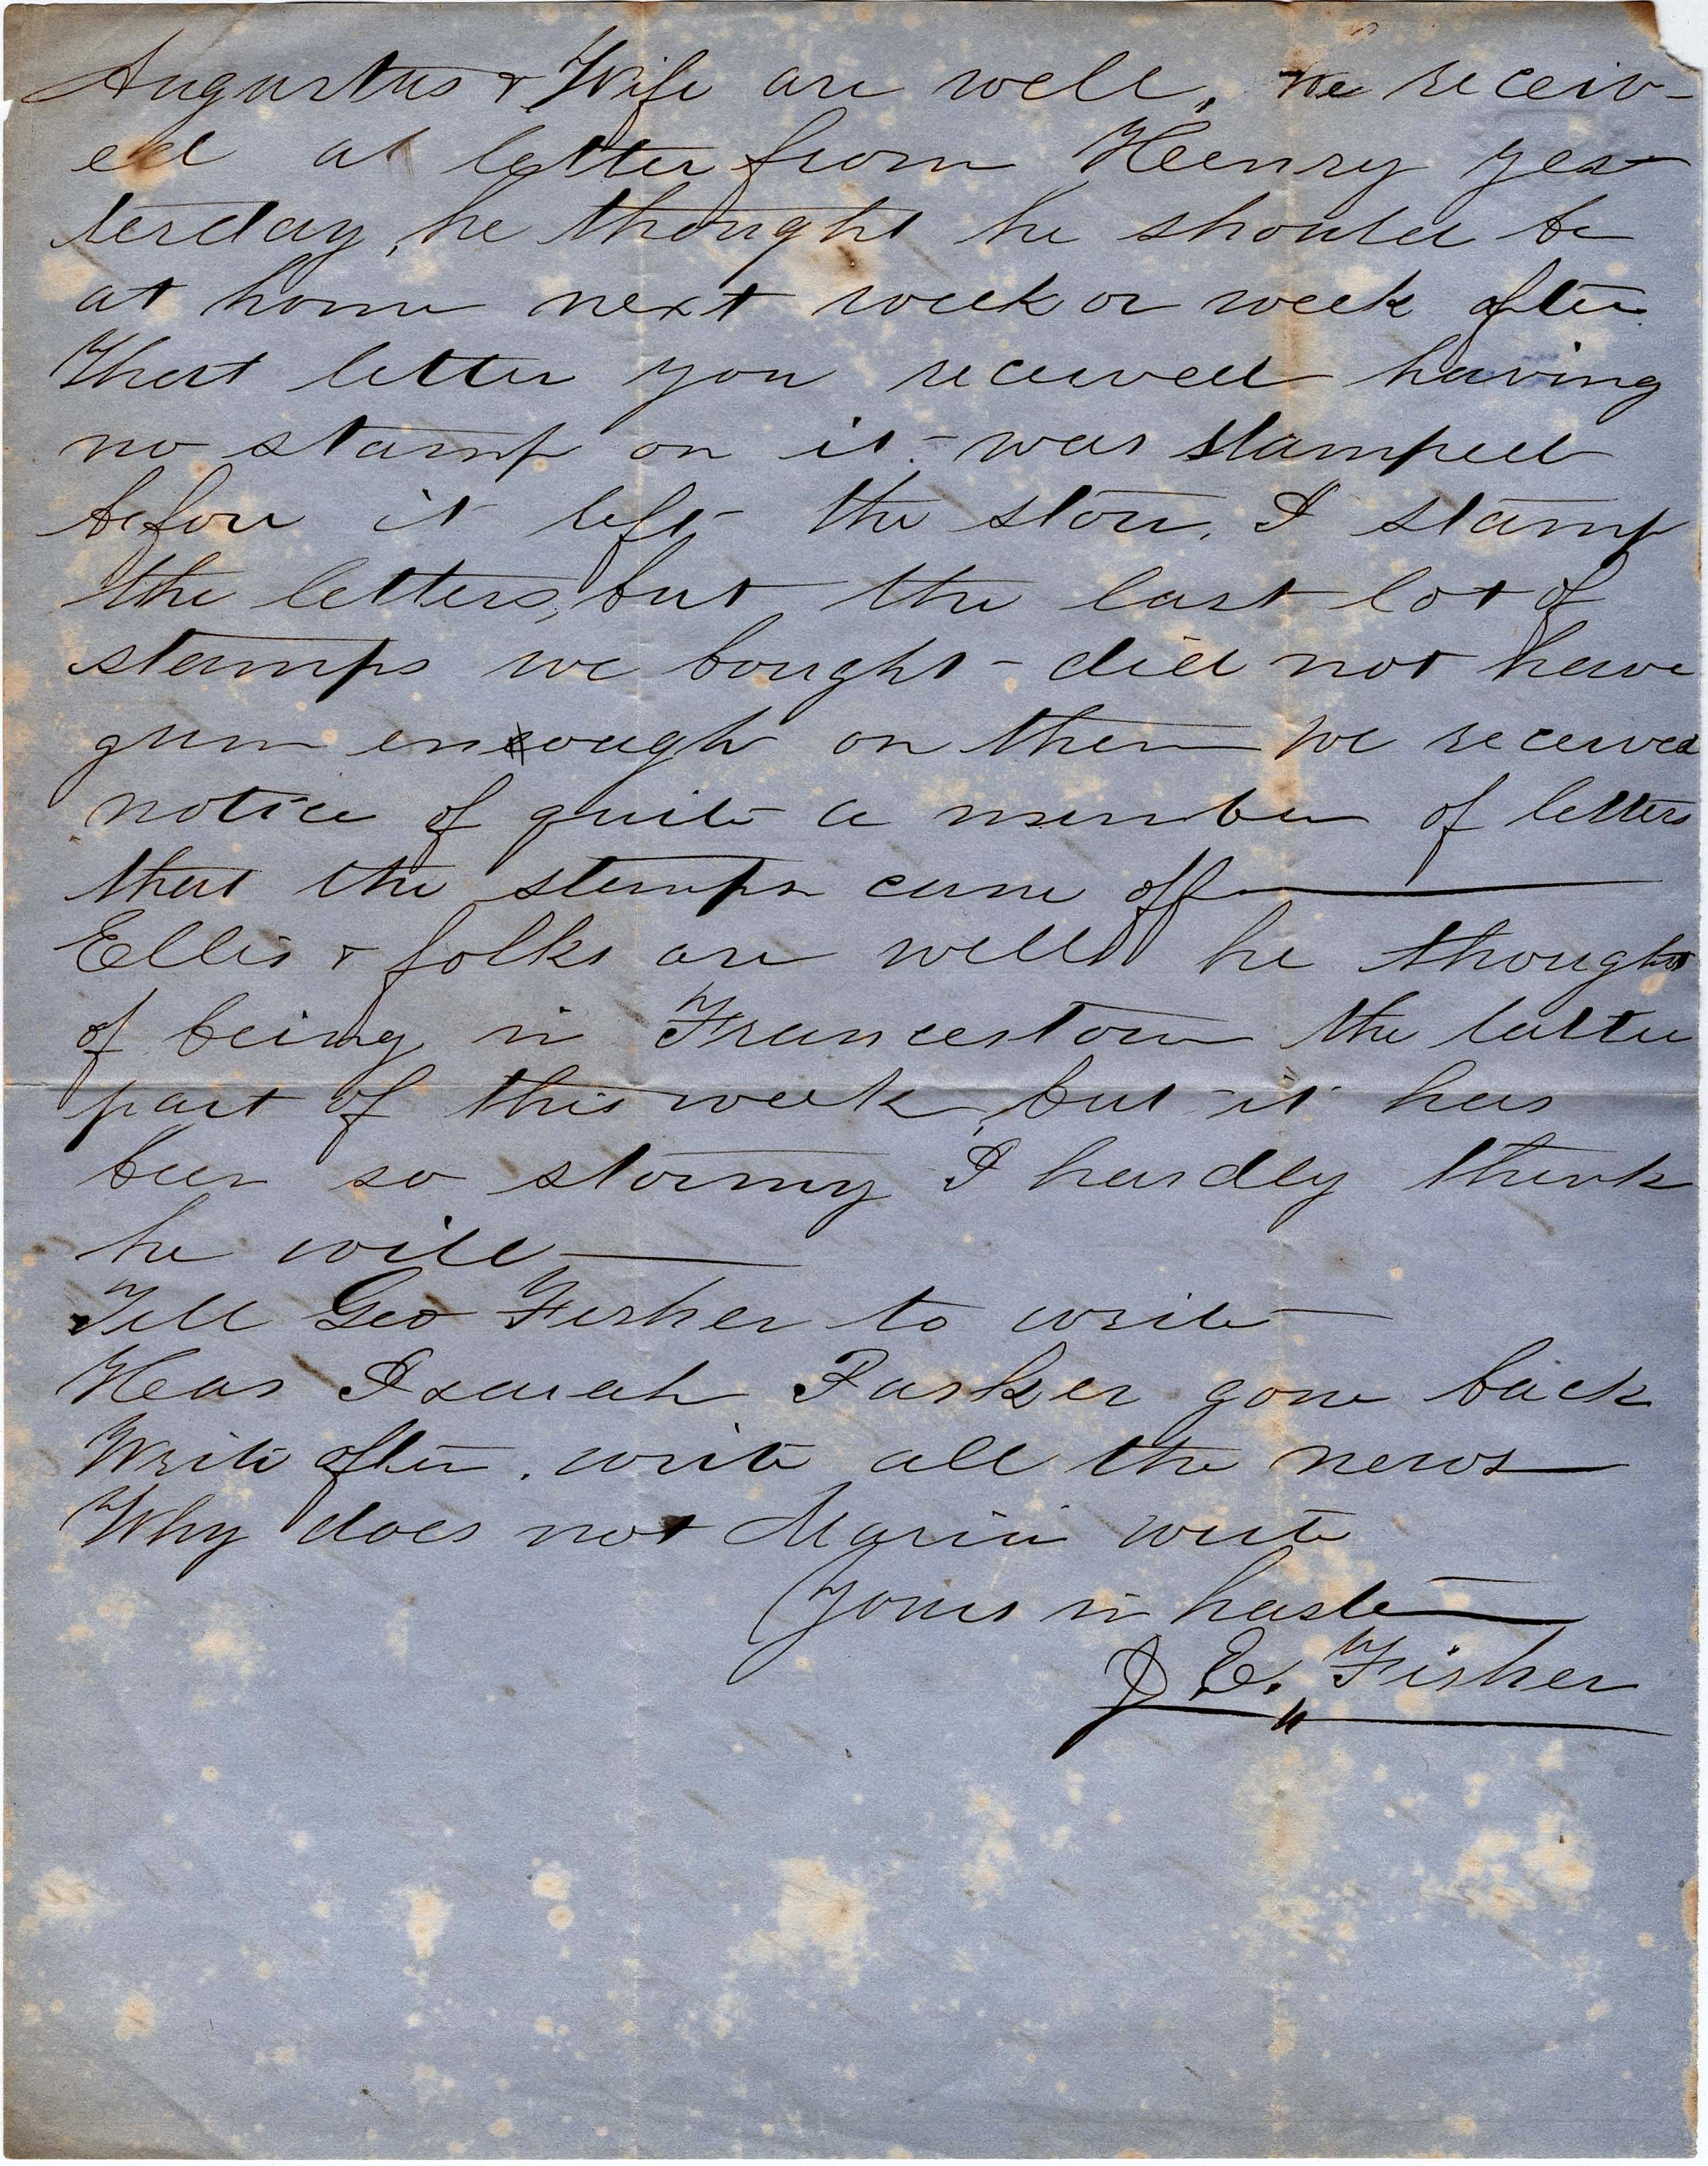 Augustus & Wife are well, We receiv-
ed a letter from Henry yes-
terday, he thought he should be
at home next week or week after
That letter you received having
no stamp on it - was stamped
before it left the store, I stamp
the letters, but the last lot of
stamps we bought - did not have
gum enough on them We received
notice of quite a number of letters
that the stamps came off
Ellis & folks are well he thought
of being in Francestown the latter
part of this week, but it has
been so stormy I hardly think
he will
Tell Geo Fisher to write
Has Isaiah Parker gone back
Write often, write all the news
Why does not Maria write
Yours in haste
J. E. Fisher